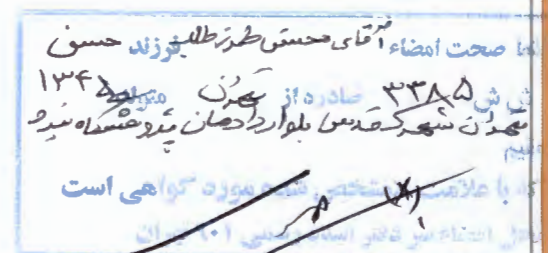 صحت امضاء آقای محسن طلب فرزند حسن
ش ش ۳۳۸۵ صادره از تهران متولد ۱۳۴۵
تهران شهرک قدس بلوار دادمان پژوهشگاه نیرو
مقیم
که با علامت مشخص شده مورد گواهی است
دفتر اسناد رسمی ۹۰۱ تهران